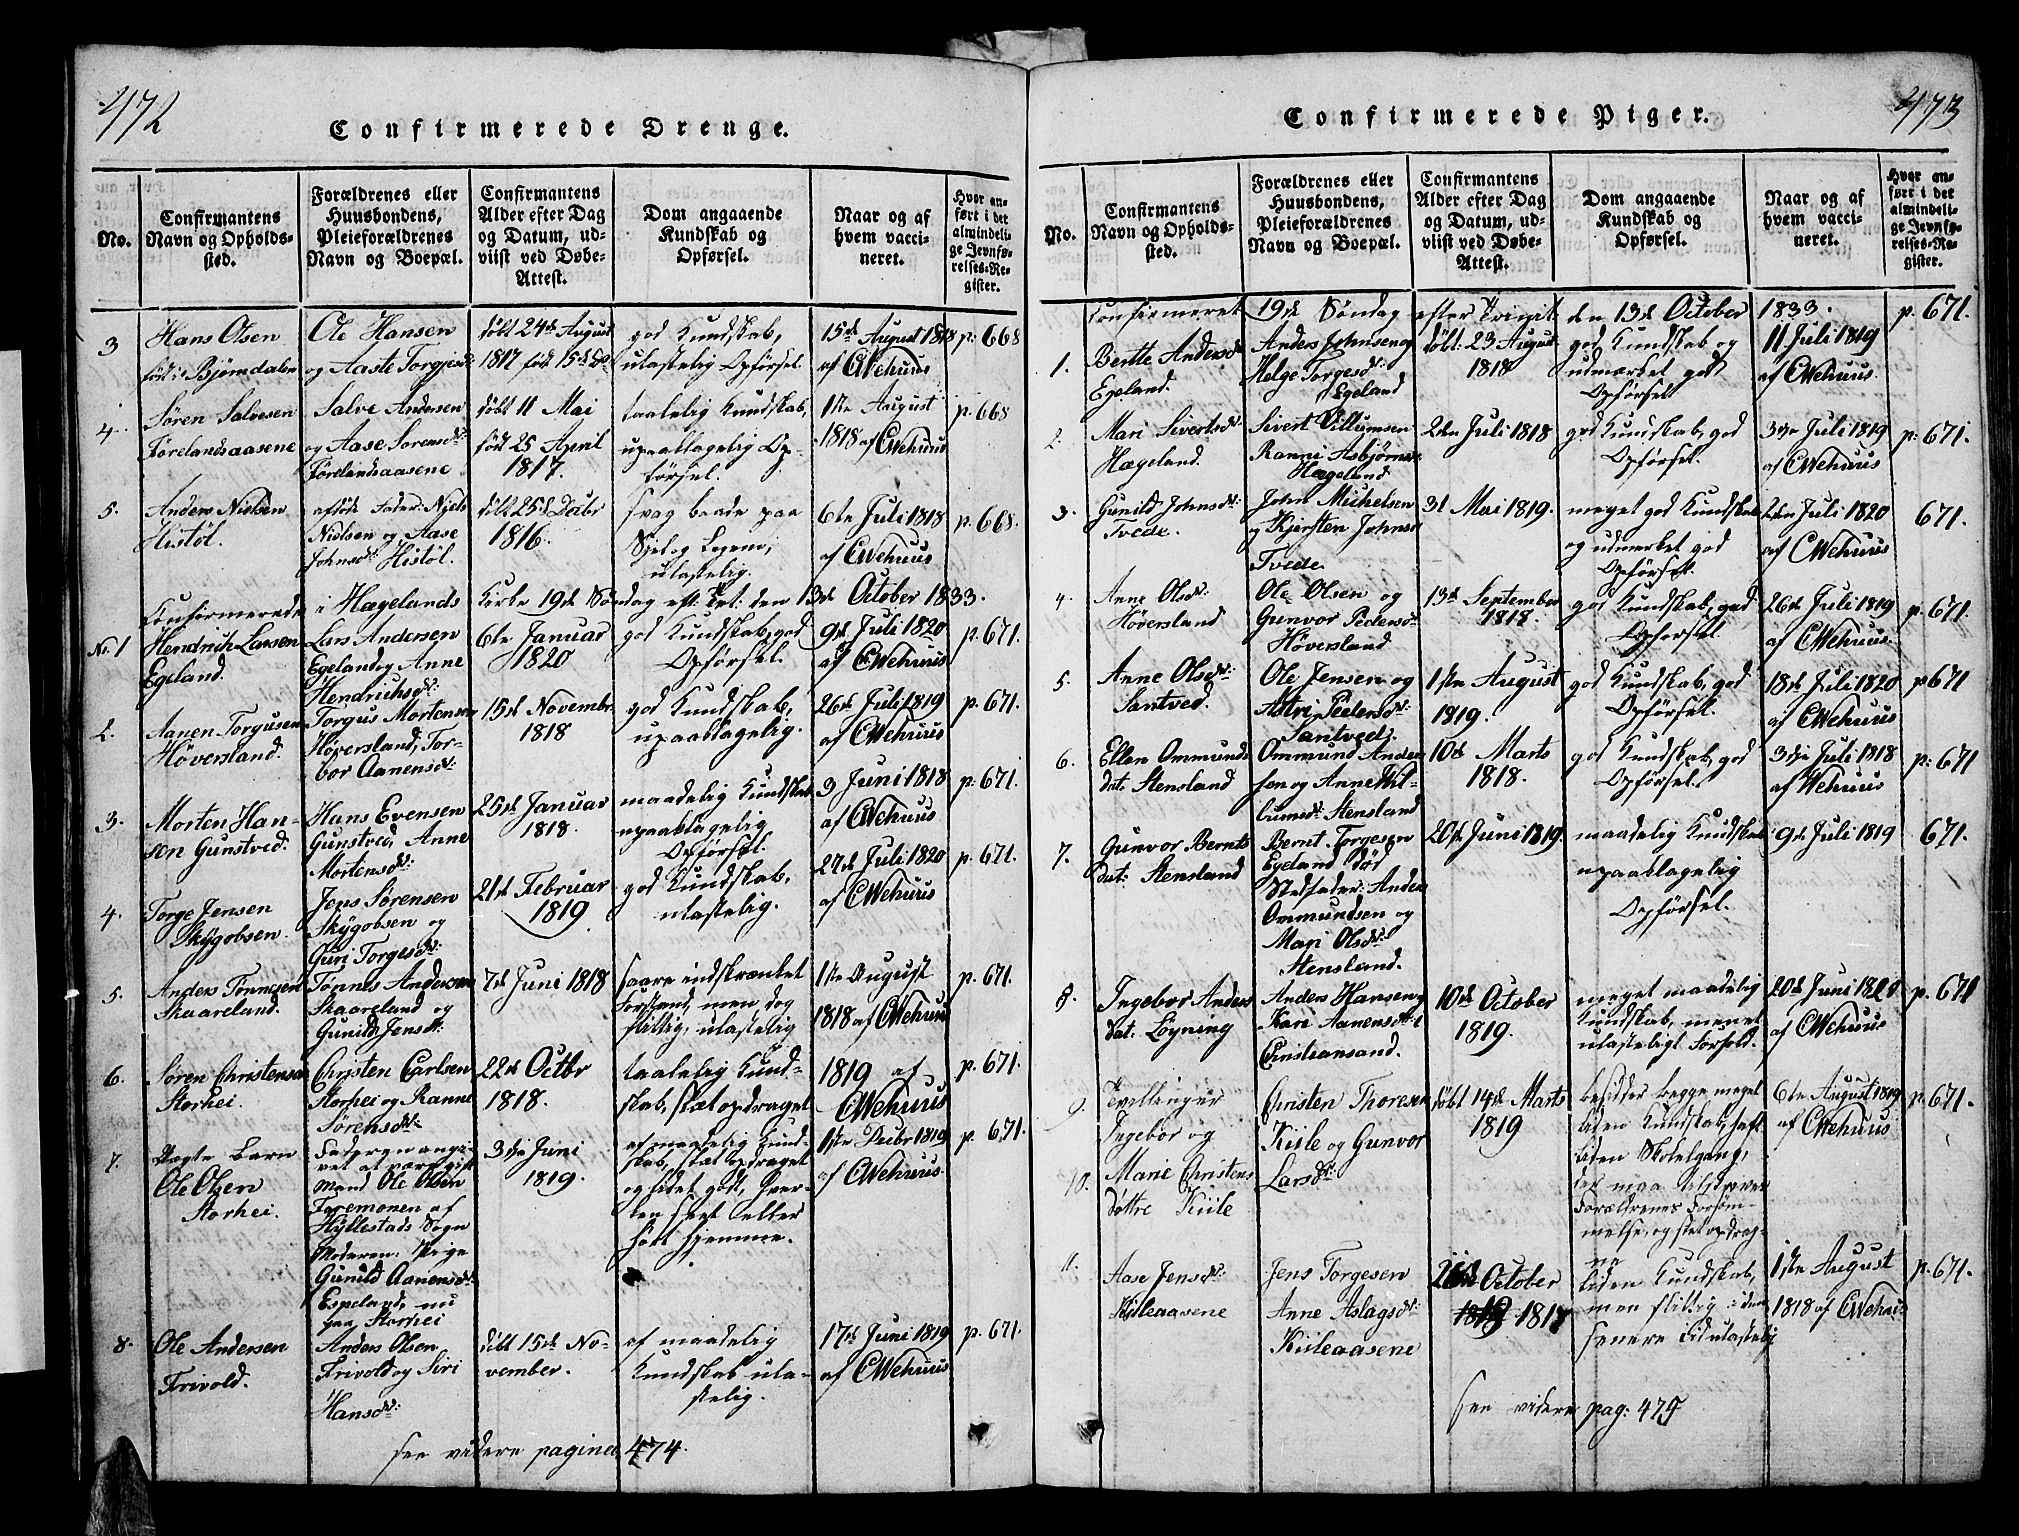 472
Confirmerede Drenge.
No.
Confirmantens
Navn og Opholds-
sted.
Forældrenes eller
Huusbondens,
Pleieforældrenes
Navn og Boepæl.
Confirmantens
Alder efter Dag
og Datum, ud-
viist ved Døbe-
Attest.
Dom angaaende
Kundskab og
Opførsel.
Naar og af
hvem vacci-
neret.
Hvor an-
ført i det
almindeli-
ge Jevnfø-
relses-Re-
gister.
3
Hans Olsen
født i Bjørndalen
Ole Hansen
og Aaste Torgjesd:
døbt 24de August
1817 født 15de do
god Kundskab,
ulastelig Opførsel
15de August 1818
af CWehuus
p: 668
4
Søren Salvesen
Førelandsaasene
Salve Andersen
og Aase Sørensdt:
Førelandsaasene
døbt 11 Mai
født 25 April
1817.
taalelig Kundskab,
upaaklagelig Op-
førsel.
1ste August
1818 af CWehuus
p. 668
5.
Anders Nielsen
Histøl.
Fader: Niels
Nielsen og Aase
Johnsdt: Histøl.
døbt 25de Decbr
1816.
svag baade paa
Sjel og Legem,
ulastelig.
6te Juli 1818
af CWehuus
p. 668.
Confirmerede i Hægelands Kirke 19de Søndag eft: Tret: den 13de October 1833.
No. 1
Hendrich Larsen
Egeland.
Lars Andersen
Egeland og Anne
Hendrichsdt:
6te Januar
1820
god Kundskab, god
Opførsel.
9de Juli 1820
af CWehuus
p. 671.
2.
Aanen Torgusen
Høversland.
Torgus Mortensen
Høversland, Tor-
bor Aanensdt:
15de Novembr
1818
god Kundskab,
upaaklagelig.
26de Juli 1819
af CWehuus
p. 671.
3.
Morten Han-
sen Gunstved.
Hans Evensen
Gunstved, Anne
Mortensdt:
25de Januar
1818.
maadelig Kundskab
upaaklagelig
Opførsel.
3 Juni 1818
af CWehuus
p. 671.
4.
Torge Jensen
Skygobsen
Jens Sørensen
Skygobsen og
Guri Torgesdt:
21de Februar
1819
god Kundskab,
ulastelig.
27de Juli 1820
af CWehuus
p. 671.
5.
Anders Tønnesen
Skaareland.
Tønnes Andersen
Skaareland og
Gunild Jensdt:
7de Juni 1818
saare indskrænket
Forstand, men dog
flittig, ulastelig
1ste August
1818 af CWehuus
p. 671.
6.
Søren Christensen
Storhei.
Christen Carlsen
Storhei og Ranne
Sørensdt:
22de Octbr
1818.
taalelig Kund-
skab, slæt opdraget
1819 af
CWehuus
p. 671.
7.
Uægte Barn
Ole Olsen
Storhei.
Faderen angi-
vet at være gift
Mand Ole Olsen
Faremonen af
Hyllestads Sogn
Moderen: Pige
Gunild Aanensdt:
Espeland, nu
paa Storhei
3die Juni
1819.
af maadelig Kund-
skab, slæt opdraget
og lidet godt, hver-
ken seet eller
hørt hjemme.
1ste Decbr 1819
af CWehuus
p. 671.
8.
Ole Andersen
Frivold.
Anders Olsen
Frivold og Siri
Hansdt:
døbt 15de No-
vember.
af maadelig
Kundskab ula-
stelig.
17de Juni 1819
af CWehuus
p. 671.
see videre pagina 474.
473
Confirmerede Piger.
No.
Confirmantens
Navn og Opholds-
sted.
Forældrenes eller
Huusbondens,
Pleieforældrenes
Navn og Boepæl.
Confirmantens
Alder efter Dag
og Datum, ud-
viist ved Døbe-
Attest.
Dom angaaende
Kundskab og
Opførsel.
Naar og af
hvem vacci-
neret.
Hvor an-
ført i det
almindeli-
ge Jevnfø-
relses-Re-
gister.
Confirmeret 19de Søndag efter Trinit den 13de October 1833. p. 671.
1.
Berthe Andersdt
Egeland.
Anders Johnsen og
Helge Torgesdt:
Egeland
døbt: 23 August
1818
god Kundskab og
udmærket god
Opførsel
11 Juli 1819
af CWehuus.
2.
Mari Sivertsdt:
Hægeland.
Sivert Villumsen
Ranni Asbjørns
Hægeland
2den Juli 1818
god Kundskab, god
Opførsel.
3die Juli 1819
af CWehuus
p: 671.
3.
Gunild Johnsdt:
Tvede.
John Michelsen
og Kjersten Johnsd
Tvede
31 Mai 1819.
meget god Kundskab
og udmerket god
Opførsel.
2den Juli 1820
af CWehuus
671.
4.
Anne Olsdt:
Høversland
Ole Olsen og
Gunvor Pedersdt
Høversland
13de September
1818.
god Kundskab, god
Opførsel.
26de Juli 1819
af CWehuus
p. 671.
5.
Anne Olsdt:
Santved.
Ole Jensen og
Astri Pedersdt:
Santved.
1ste August
1819.
god Kundskab, god
Opførsel.
18de Juli 1820
af CWehuus
p 671
6.
Ellen Ommunds
dat: Stensland
Ommund Ander
sen og Anne Wil-
lumsdt: Stensland
10de Marts
1818.
god Kundskab, god
Opførsel.
3die Juli 1818
af Wehuus
p: 671
7.
Gunvor Bernts
dat: Stensland
Bernt Torgesen
Egeland død
Stedfader: Anders
Ommundsen og
Mari Olsdt:
Stensland.
20de Juni 1819.
maadelig Kundskab
upaaklagelig
Opførsel.
9de Juli 1819
671.
8.
Ingebor Anders
dat: Løyning
Anders Hansen og
Kari Aanensdt: i
Christiansand.
10de October
1819.
meget maadelig
Kundskab,
ulasteligt Forhold.
20de Juni 1820
af CWehuus
p. 671
9.
10.
Tvillinger
Ingebor og
Marie Christens
døttre Kiile
Christen Thoresen
Kiile og Gunvor
Larsdt:
døbt 14de Marts
1819
besidder begge meget
liden Kundskab, haft
liden Skolelgang,
Forældrenes Forsøm-
melse, og slet opdrag-
ne
6te August 1819
af CWehuus
p. 671.
11.
Aase Jensdt:
Kiileaasene
Jens Torgesen
Anne Aslagsdt:
Kiileaasene
October
1817
liden Kundskab,
men flittig i den
senere Tid ulastelig
1ste August
1818 af CWehuus
p. 671.
see videre pag: 475